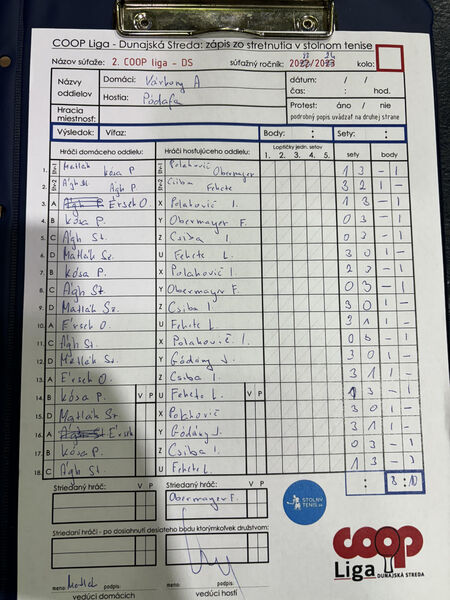 COOP Liga - Dunajská Streda: zápis zo stretnutia v stolnom tenise
Názov súťaže: 2. COOP liga - DS súťažný ročník: kolo:
Názvy oddielov
Domáci: Várkony A
Hostia: Pódafa
dátum: / /
čas: : hod.
Hracia miestnosť:
Protest: áno / nie
podrobný popis uvádzať na druhej strane
Výsledok: Víťaz: Body: : Sety: :
Hráči domáceho oddielu: Hráči hosťujúceho oddielu: Loptičky jedn. setov sety body
1. 2. 3. 4. 5.
1. Matlák Kósa P. Polahovič Obermayer 1 3 - 1
2. Ágh St. Ágh P. Csiba Fehete 3 2 1 -
3. A Érsek O. X Polahovič I. 1 3 - 1
4. B Kósa P. Y Obermayer F. 0 3 - 1
5. C Ágh St. Z Csiba I. 0 3 - 1
6. D Matlák Sz. U Fehete L. 3 0 1 -
7. B Kósa P. X Polahovič I. 2 3 - 1
8. A Ágh St. Y Obermayer F. 0 3 - 1
9. D Matlák Sz. Z Csiba I. 3 0 1 -
10. A Érsek O. U Fehete L. 3 1 1 -
11. C Ágh St. X Polahovič I. 0 3 - 1
12. D Matlák Sz. Y Gódány J. 3 0 1 -
13. A Érsek O. Z Csiba I. 3 1 1 -
14. B Kósa P. V P U Fehete L. V P 1 3 - 1
15. D Matlák Sz. X Polahovič 3 0 1 -
16. A Érsek Y Gódány J. 3 1 1 -
17. B Kósa P. Z Csiba I. 0 3 - 1
18. C Ágh St. U Fehete L. 1 3 - 1
: 8 : 10
Striedaný hráč: V P Striedaný hráč: V P
Obermayer F.
STOLNÝ TENIS
Striedaní hráči - po dosiahnutí desiateho bodu ktorýmkoľvek družstvom:
coop
Liga DUNAJSKÁ STREDA
meno: podpis: meno: podpis:
vedúci domácich vedúci hostí